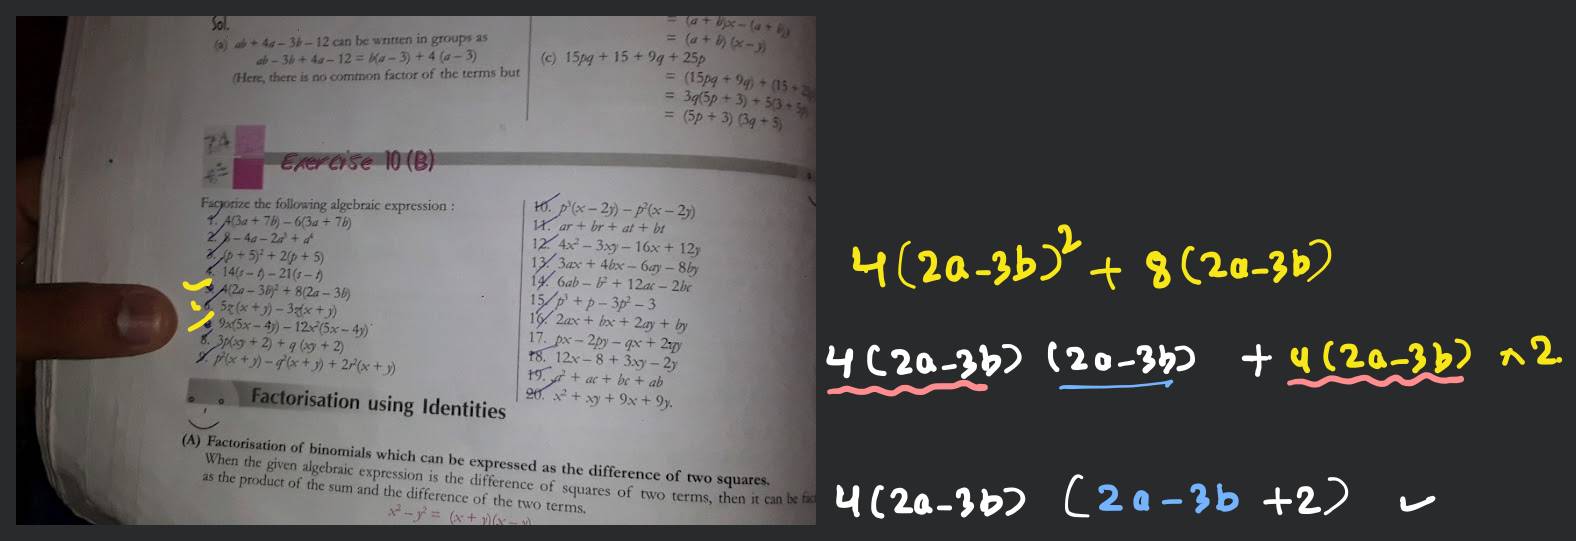 Sol.
(a) ab + 4a – 3b – 12 can be written in groups as
ab – 3b + 4a – 12 = b(a – 3) + 4 (a – 3)
(Here, there is no common factor of the terms but
= (a + b)x – (a + b)y
= (a + b) (x – y)
(c) 15pq + 15 + 9q + 25p
= (15pq + 9q) + (15 + 25p
= 3q(5p + 3) + 5(3 + 5p)
= (5p + 3) (3q + 5)
Exercise 10 (B)
Factorize the following algebraic expression :
1. 4(3a + 7b) – 6(3a + 7b)
2. 8 – 4a – 2a³ + a⁴
3. (p + 5)² + 2(p + 5)
4. 14(s – t) – 21(s – t)
5. 4(2a – 3b)² + 8(2a – 3b)
6. 5z(x + y) – 3z(x + y)
9x(5x – 4y) – 12x²(5x – 4y)
8. 3p(xy + 2) + q (xy + 2)
9. p²(x + y) – q²(x + y) + 2r²(x + y)
10. p³(x – 2y) – p²(x – 2y)
11. ar + br + at + bt
12. 4x² – 3xy – 16x + 12y
13. 3ax + 4bx – 6ay – 8by
14. 6ab – b² + 12ac – 2bc
15. p³ + p – 3p² – 3
16. 2ax + bx + 2ay + by
17. px – 2py – qx + 2qy
18. 12x – 8 + 3xy – 2y
19. a² + ac + bc + ab
20. x² + xy + 9x + 9y.
Factorisation using Identities
(A) Factorisation of binomials which can be expressed as the difference of two squares.
When the given algebraic expression is the difference of squares of two terms, then it can be
as the product of the sum and the difference of the two terms.
x² – y² = (x + y)(x – y)
4(2a-3b)² + 8(2a-3b)
4(2a-3b) (2a-3b) + 4(2a-3b) × 2.
4(2a-3b) (2a-3b +2)